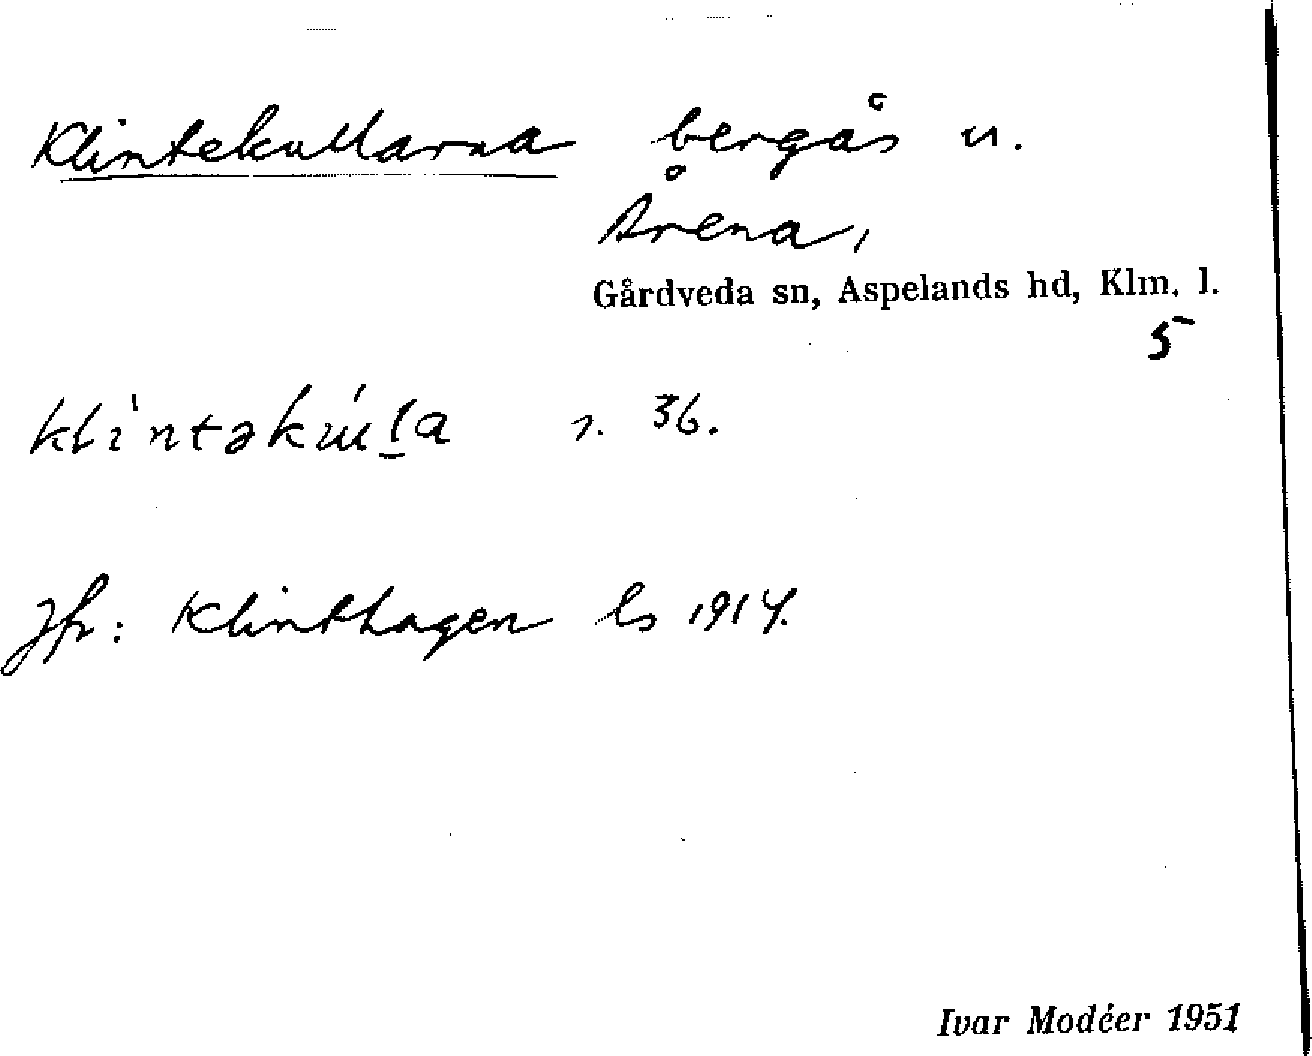 Klintekullarna bergås n.
Årena,
Gårdveda sn, Aspelands hd, Klm. l.
5
36.
Jfr: Klinthagen ls 1914.
Ivar Modéer 1951